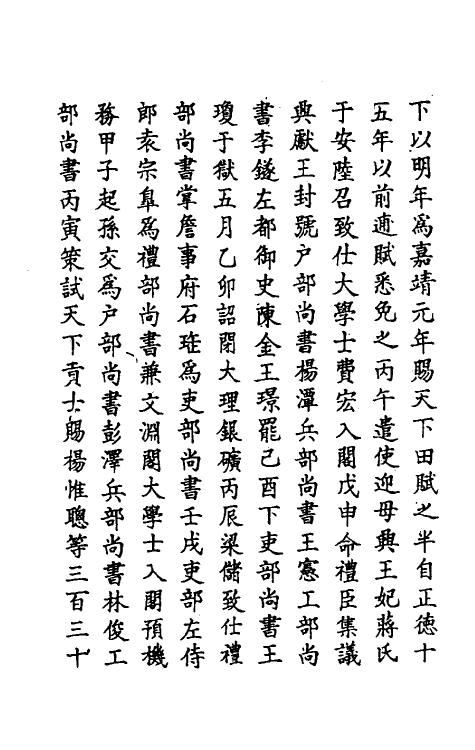 下以明年爲嘉靖元年賜天下田賦之半自正德十
五年以前逋賦悉免之丙午遣使迎母興王妃蔣氏
于安陸召致仕大學士費宏入閣戊申命禮臣集議
興獻王封號戶部尚書楊潭兵部尚書王憲工部尚
書李鐩左都御史陳金王璟罷己酉下吏部尚書王
瓊于獄五月乙卯詔閉大理銀礦丙辰梁儲致仕禮
部尚書掌詹事府石珤爲吏部尚書壬戌吏部左侍
郎袁宗臯爲禮部尚書兼文淵閣大學士入閣預機
務甲子起孫交爲戶部尚書彭澤兵部尚書林俊工
部尚書丙寅策試天下貢士賜楊惟聰等三百三十